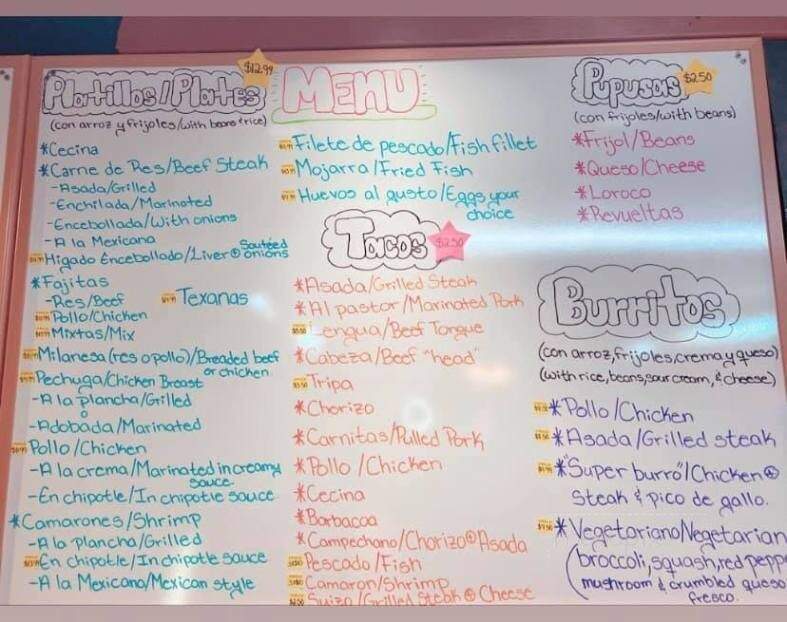 Platillos/Plates
$12.99
(con arroz y frijoles/with beans & rice)
*Cecina
*Carne de Res/Beef Steak
-Asada/Grilled
-Enchilada/Marinated
-Encebollada/With onions
-A la Mexicana
Higado Encebollado/Liver & Sautéed onions
*Fajitas
-Res/Beef
Pollo/Chicken
Mixtas/Mix
Texanas
Milanesa (res o pollo)/Breaded beef
or chicken
Pechuga/Chicken Breast
-A la plancha/Grilled
o
-Adobada/Marinated
Pollo/Chicken
-A la crema/Marinated in creamy
sauce.
-En chipotle/In chipotle sauce
*Camarones/Shrimp
-A la Plancha/Grilled
En chipotle/In chipotle sauce
-A la Mexicana/Mexican style
MENU
Filete de pescado/Fish fillet
Mojarra/Fried Fish
Huevos al gusto/Eggs your
choice
Tacos
$2.50
*Asada/Grilled Steak
*Al pastor/Marinated Pork
Lengua/Beef Tongue
*Cabeza/Beef "head"
Tripa
*Chorizo
*Carnitas/Pulled Pork
*Pollo/Chicken
*Cecina
*Barbacoa
*Campechano/Chorizo & Asada
Pescado/Fish
Camaron/Shrimp
Suizo/Grilled Steak & Cheese
Pupusas
$2.50
(con frijoles/with beans)
*Frijol/Beans
*Queso/Cheese
*Loroco
*Revueltas
Burritos
(con arroz,frijoles,crema y queso)
(with rice, beans, sour cream, & cheese)
*Pollo/Chicken
*Asada/Grilled steak
*"Super burro"/Chicken &
Steak & pico de gallo.
*Vegetariano/Vegetarian
(broccoli, squash, red pepp
mushroom & crumbled queso
fresco.